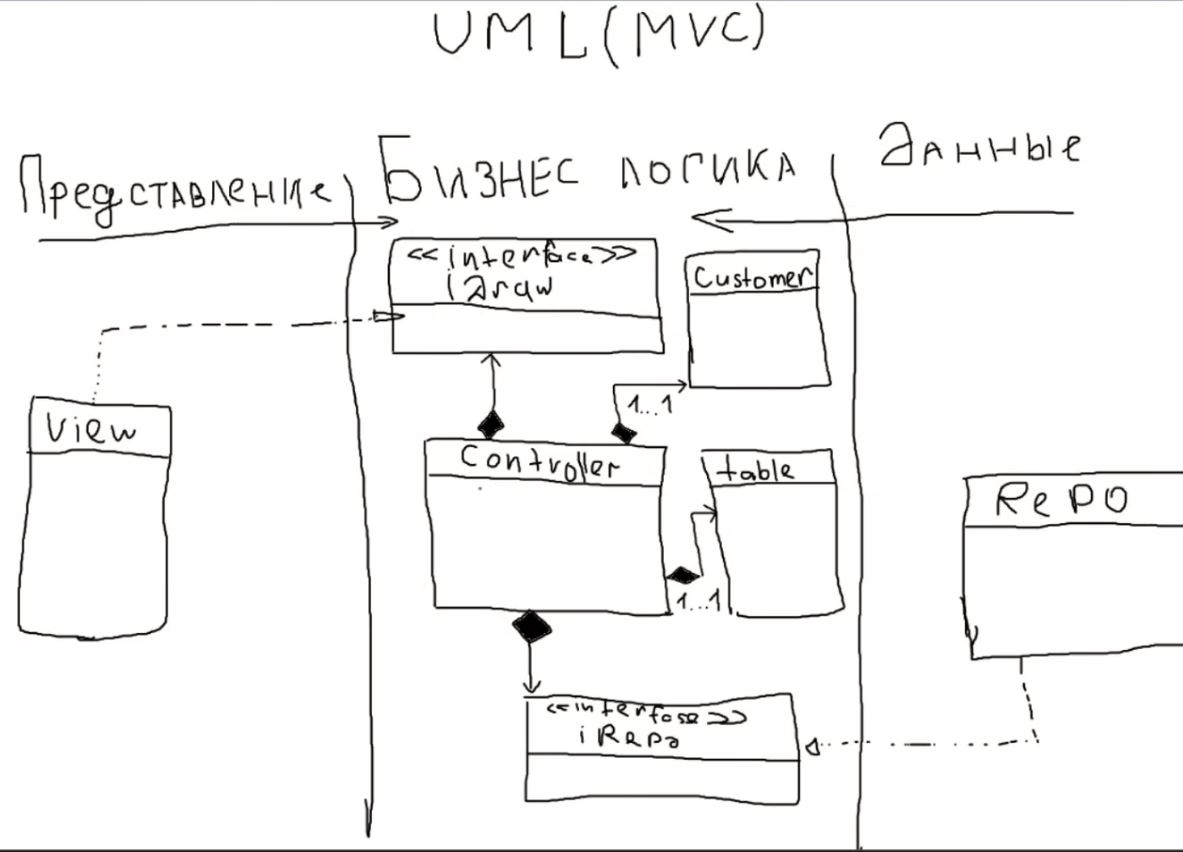 UML(MVC)
Представление
Бизнес логика
Данные
<<interface>>
iDraw
Customer
1...1
View
Controller
table
1...1
RePO
<<interfase>>
iRepo